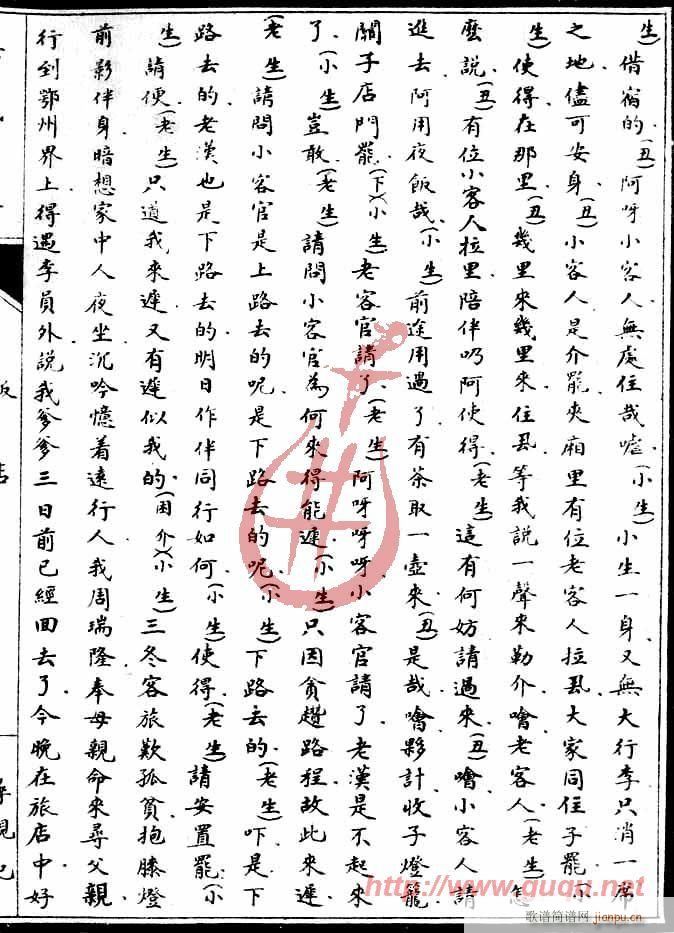 生)借宿的(丑)阿呀小客人無處住哉嘘(小生)小生一身又無大行李只消一席
之地儘可安身(丑)小客人是介罷夾廂里有位老客人拉丟大家同住子罷(小
生)使得在那里(丑)幾里來幾里來住丟等我說一聲來勒介噲老客人(老生)怎
麽說(丑)有位小客人拉里陪伴吶阿使得(老生)這有何妨請過來(丑)噲小客人請
進去阿用夜飯哉(小生)前途用過了有茶取一壺來(丑)是哉噲夥計收子燈籠
關子店門罷(下)(小生)老客官請了(老生)阿呀呀呀小客官請了老漢是不起來
了(小生)豈敢(老生)請問小客官為何來得能遲(小生)只因貪趲路程故此來遲
(老生)請問小客官是上路去的呢是下路去的呢(小生)下路去的(老生)吓是下
路去的老漢也是下路去的明日作伴同行如何(小生)使得(老生)請安置罷(小
生)請便(老生)只道我來遲又有遲似我的(困介)(小生)三冬客旅歎孤貧抱膝燈
前影伴身暗想家中人夜坐沉吟憶着遠行人我周瑞隆奉母親命來尋父親
行到鄂州界上得遇李員外說我爹爹三日前已經回去了今晚在旅店中好
飯店
尋親記
http://www.guqu.net
歌谱简谱网
jianpu.cn